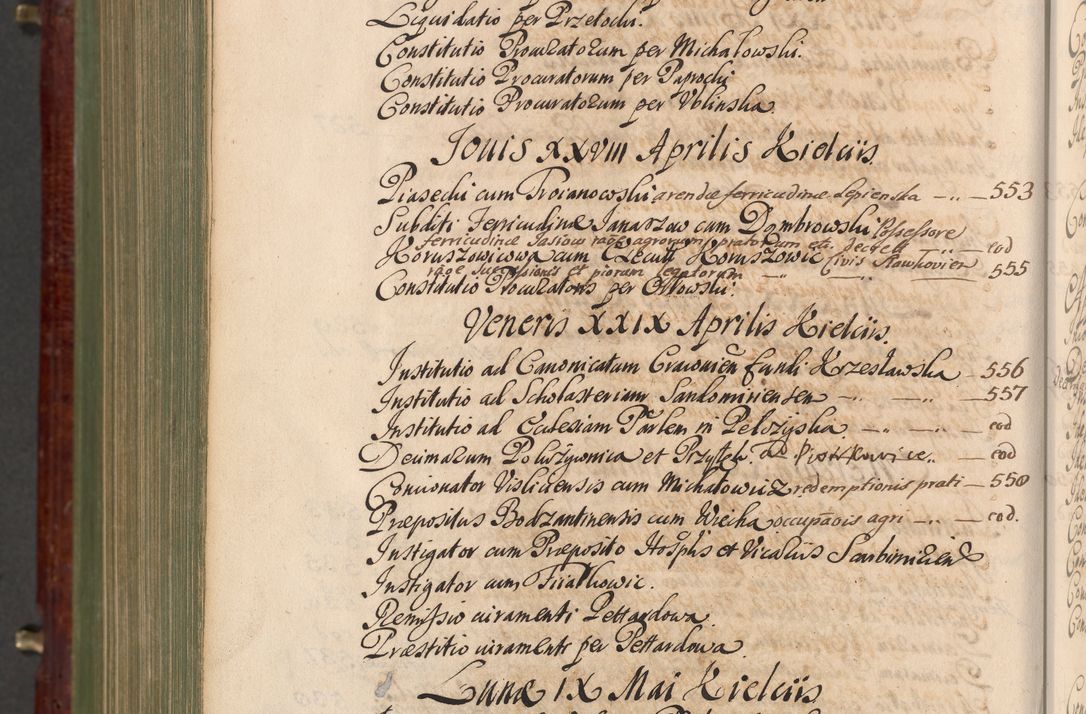 Liquidatio per Przetocki.
Constitutio Procuratorum per Michałowski.
Constitutio Procuratorum per Paprocki
Constitutio Procuratorum per Wolinska
Jouis XXVIII Aprilis Kielciis.
Piasecki cum Troianowski arendæ ferricudinæ Lepienska — „ — 553
Subditi Ferricudinæ Janaszow cum Dombrowski Possessore
ferricudinæ Jasiow rače agrorum pratorum etc. decrett — eod
Koruszowicowa cum Executt Koruszowic Civis Sławkovien
rače successionis et piorum legatorum — „ — „ — 555
Constitutio Procuratoris per Orłowski.
Veneris XXIX Aprilis Kielciis.
Institutio ad Canonicatum Cracovien fundi Krzesławska — 556
Institutio ad Scholasteriam Sandomiriensem — „ — „ — 557
Institutio ad Ecclesiam Parlem in Pełczyska — „ — „ — eod
Decimarum Polużywnica et Przyłęk. de Piotrkowice „ — eod
Concionator Visliciensis cum Michałowicz redemptionis prati — 558
Præpositus Bodzantinensis cum Wiecha occupaõis agri — „ — eod.
Instigator cum Præposito Hosplis et Vicariis Scarbimirien
Instigator cum Firatkowic.
Remissio iuramenti Pettardowa
Præstitio iuramenti per Pettardowa
Lunæ IX Mai Kielciis